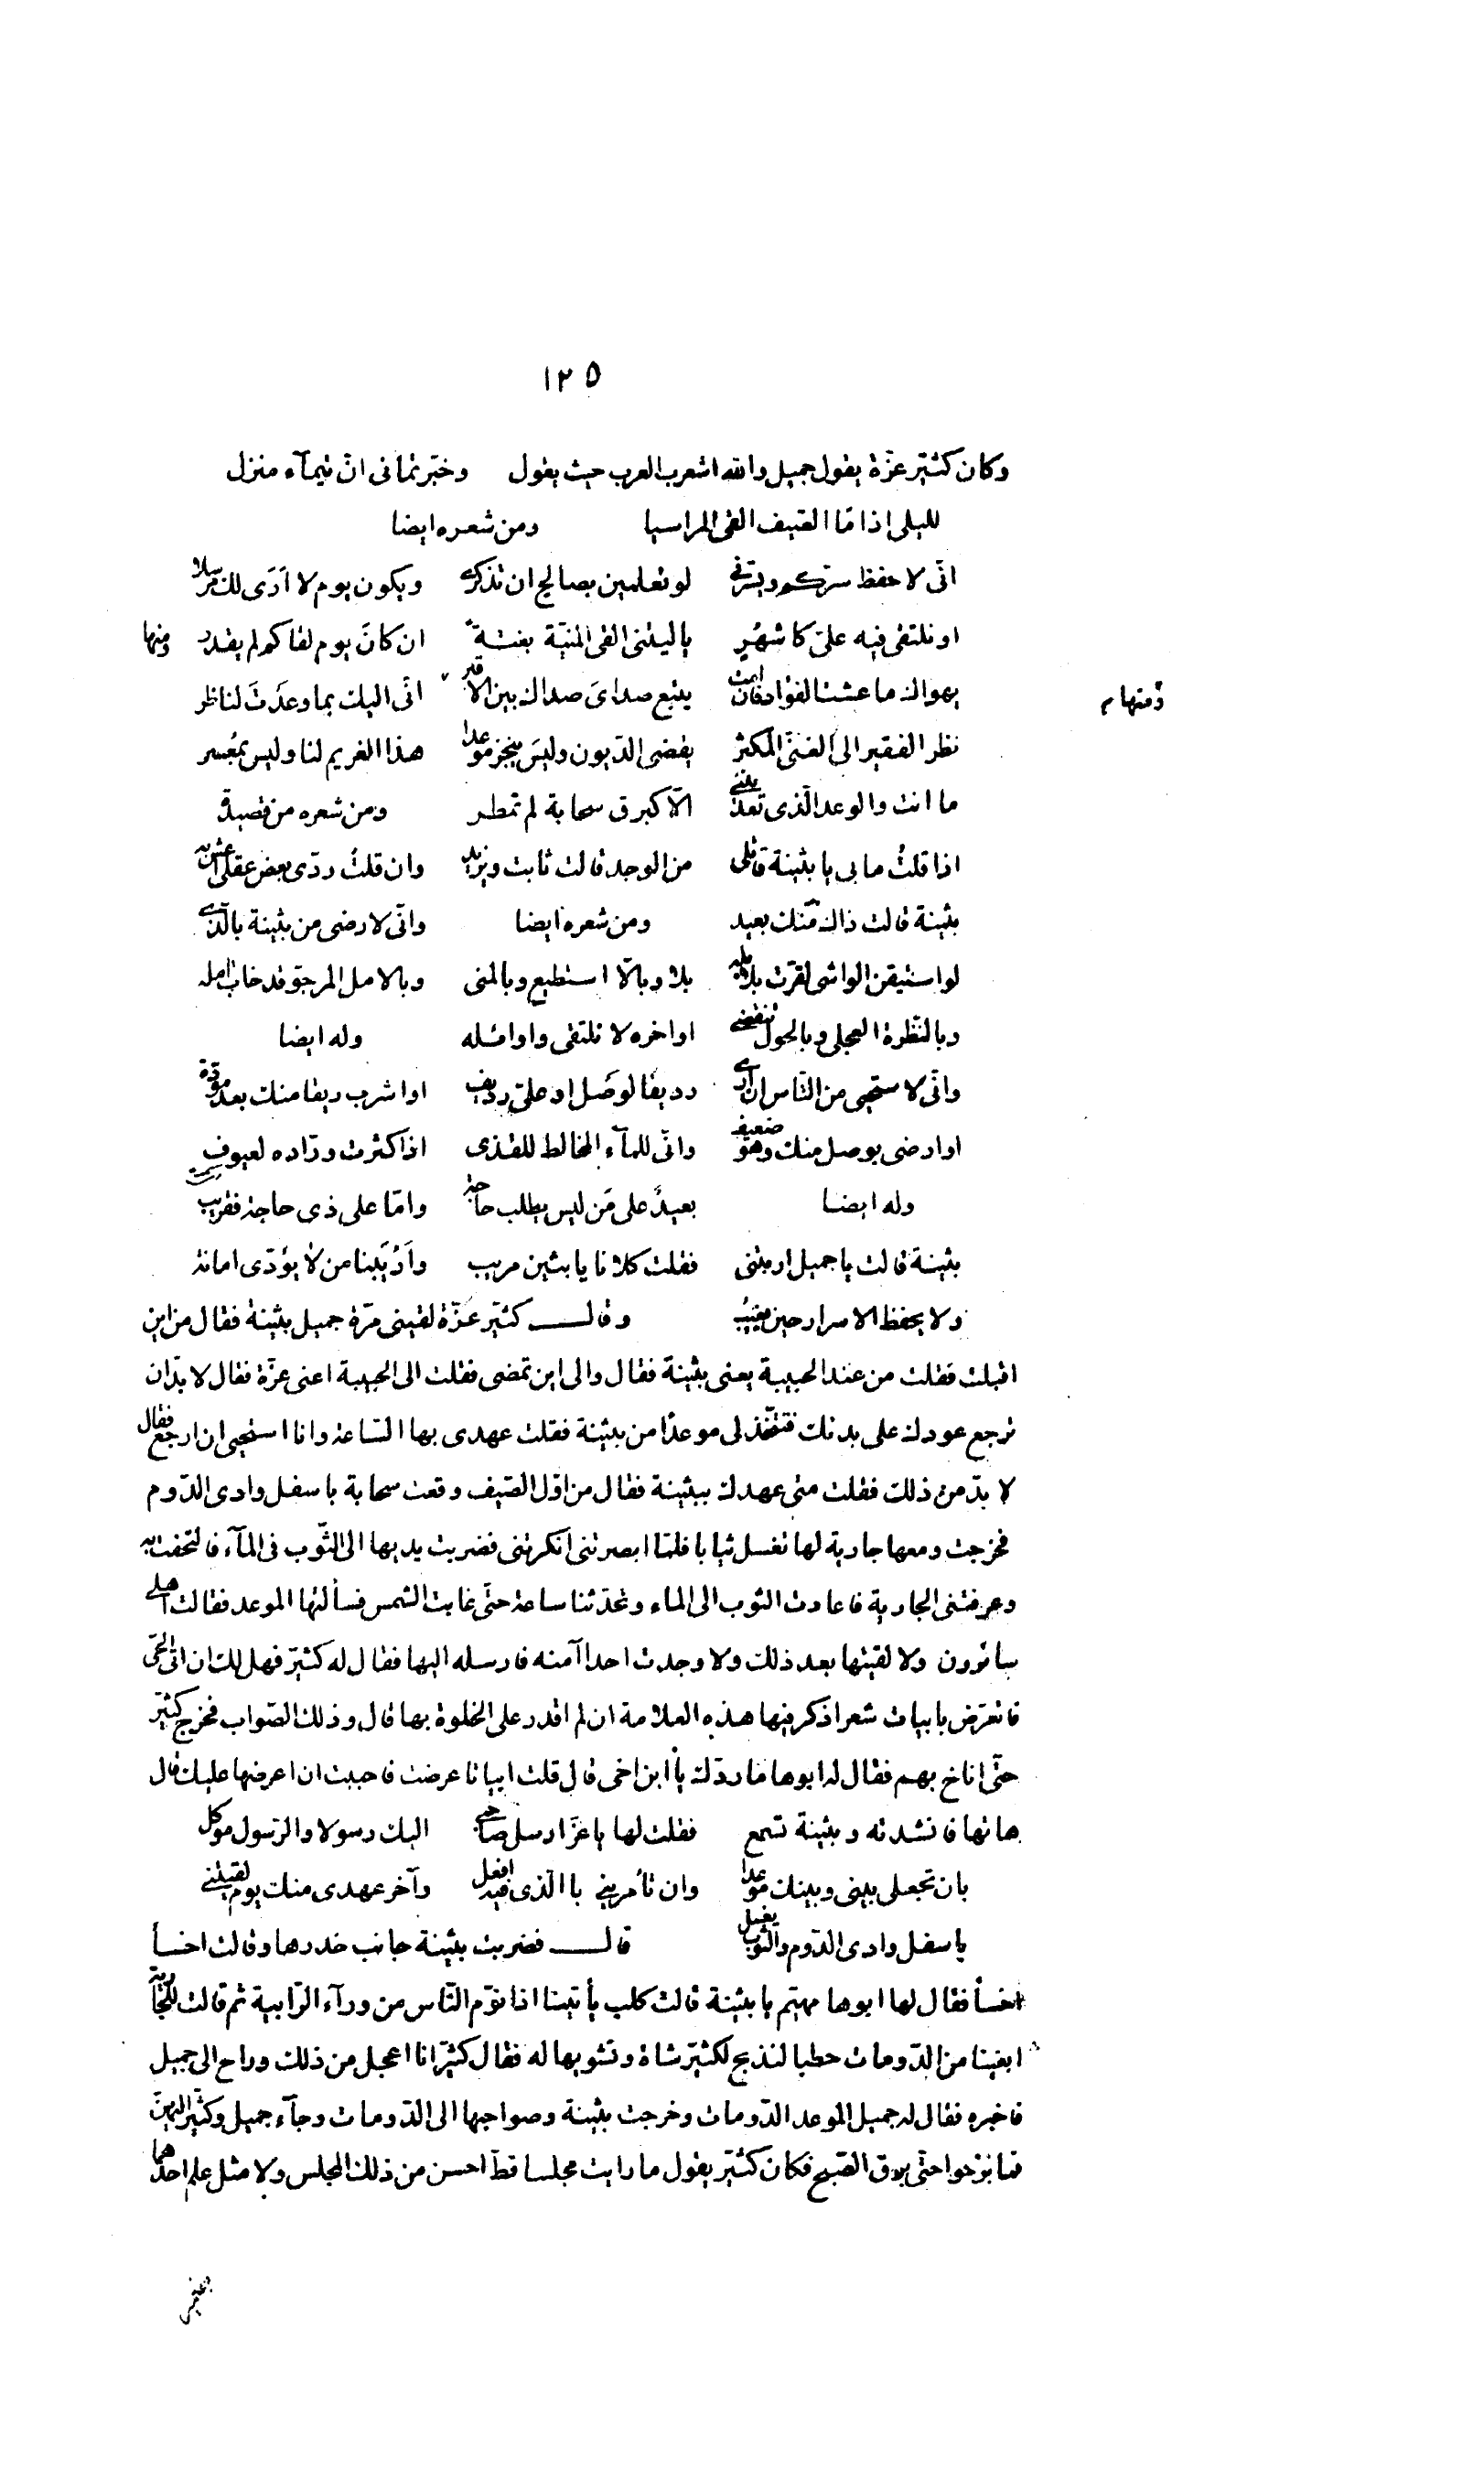 ١٢٥
وكان كثيّر عزّة يقول جميل والله اشعر العرب حيث يقول وخبّرتمانى انّ تيمآء منزل
لليلى اذا مّا الصّيف القى المراسيا ومن شعره ايضا
انّى لاحفظ سرّكم ويسرّنى لو تعلمين بصالح ان تذكرى ويكون يوم لا اَرَى لك مرسلا
او نلتقى فيه علىّ كاشهُرِ ياليتنى القى المنيّة بغتةً ان كانَ يوم لقاكم لم يقدر ومنها
يهواك ما عشت الفؤاد فان امت يتبع صداىَ صداك بين الاقبر انّى اليك بما وعدَتَ لناظر
ومنها م
نظر الفقير الى الغنىّ المكثر يقضى الدّيون وليسَ ينجز موعدا هذا الغريم لنا وليس بمُعسر
ما انت والوعد الّذى تعدينى الّا كبرق سحابة لم تمطر ومن شعره من قصيدة
اذا قلتُ ما بى يا بثينة قاتلى من الوجد قالت ثابت ويزيد وان قلتُ ردّى بعض عقلى اعش به
بثينة قالت ذاك منك بعيد ومن شعره ايضا وانّى لارضى من بثينة بالّذى
لو استيقن الواشى لقرّت بلابله بلا وبالّا استطيع وبالمنى وبالامل المرجوّ قد خاب امله
وبالنّظرة العجلى وبالحول تنقضى اواخره لا نلتقى واوائله وله ايضا
وانّى لاستحيى من النّاس ان ارى رديفا لوصل او علىّ رديف او اشرب ريقا منك بعد مودّة
او ارضى بوصل منك وهو ضعيف وانّى للمآء المخالط للقذى اذا كثرت ورّاده لعيوف
وله ايضا بعيدٌ على مَن ليس يطلب حاجة وامّا على ذى حاجة فقريب
بثينة قالت يا جميل اربتنى فقلت كلانا يا بثين مريب واَرْيَبنا من لا يؤدّى امانة
ولا يحفظ الاسرار حين يغيبُ وقال كثيّر عزّة لقينى مرّة جميل بثينة فقال من اين
اقبلت فقلت من عند الحبيبة يعنى بثينة فقال والى اين تمضى فقلت الى الحبيبة اعنى عزّة فقال لا بدّ ان
ترجع عودك على بدئك فتتّخذ لى موعدًا من بثينة فقلت عهدى بها السّاعة وانا استحيى ان ارجع فقال
لا بدّ من ذلك فقلت متى عهدك ببثينة فقال من اوّل الصّيف وقعت سحابة باسفل وادى الدّوم
فخرجت ومعها جارية لها تغسل ثيابا فلمّا ابصرتنى انكرتنى فضربت يديها الى الثّوب فى المآء فالتحفت به
وعرفتنى الجارية فاعادت الثوب الى الماء وتحدّثنا ساعة حتّى غابت الشمس فسألتها الموعد فقالت اهلى
سائرون ولا لقيتها بعد ذلك ولا وجدت احدا آمنه فارسله اليها فقال له كثيّر فهل لك ان اتى الحىّ
فاتعرّض بابيات شعر اذكر فيها هذه العلامة ان لم اقدر على الخلوة بها قال وذلك الصّواب فخرج كثيّر
حتّى اناخ بهم فقال له ابوها ما ردّك يا ابن اخى قال قلت ابياتا عرضت فاحببت ان اعرضها عليك قال
هاتها فانشدته وبثينة تسمع فقلت لها يا عزّ ارسل صاحبى اليك رسولا والرّسول موكل
بان تجعلى بينى وبينك موعدا وان تأمرينى باالّذى فيه افعل وآخر عهدى منك يوم لقيتنى
باسفل وادى الدّوم والثوب يغسل قال فضربت بثينة جانب خدرها وقالت اخسأ
اخسأ فقال لها ابوها مهيم يا بثينة قالت كلب يأتينا اذا نوّم النّاس من ورآء الرّابية ثم قالت للجارية
ابغينا من الدّومات حطبا لنذبح لكثيّر شاة ونشويها له فقال كثيّر انا اعجل من ذلك وراح الى جميل
فاخبره فقال له جميل الموعد الدّومات وخرجت بثينة وصواحبها الى الدّومات وجآء جميل وكثيّر اليهنّ
فما برحوا حتّى برق الصّبح فكان كثيّر يقول ما رايت مجلسا قطّ احسن من ذلك المجلس ولا مثل علم احدهما